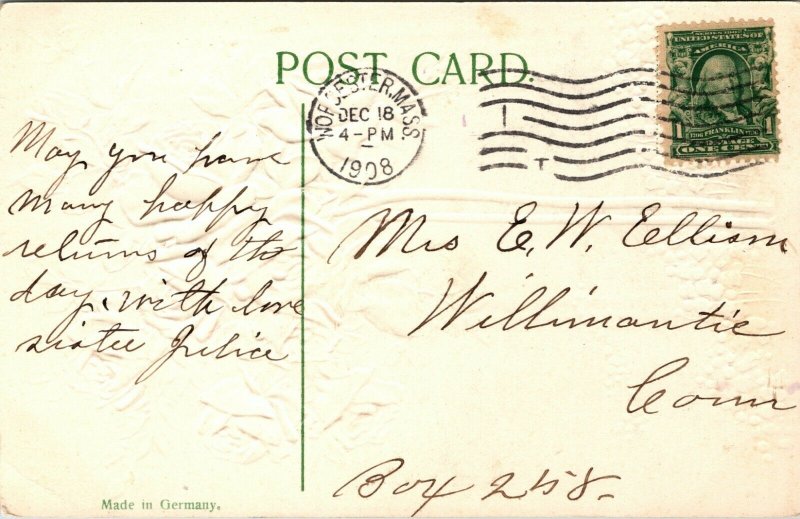 POST CARD.
WORCESTER, MASS.
DEC 18
4-PM
1908
SERIES 1902
UNITED STATES OF
AMERICA
1 FRANKLIN 1
POSTAGE
ONE CENT
May you have
many happy
returns of the
day, with love
sister Julice
Mrs E. W. Ellison
Willimantic
Conn
Box 258-
Made in Germany.